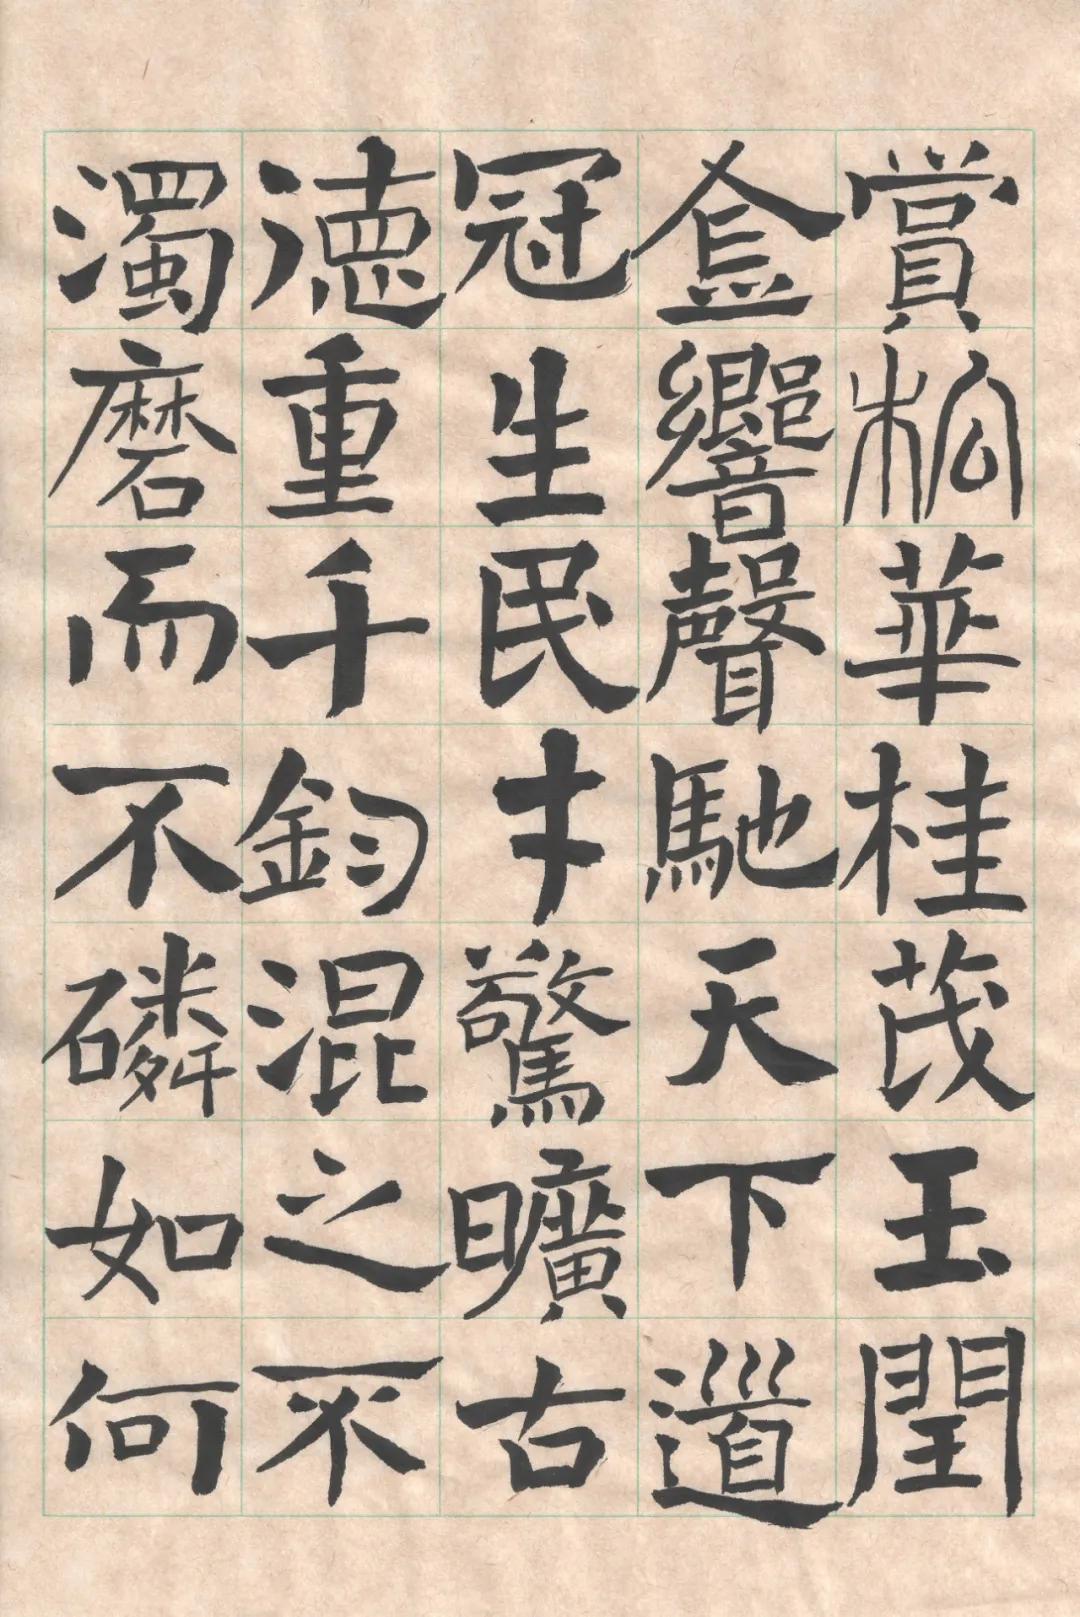 賞松華桂茂玉閏
金響聲馳天下道
冠生民才驚曠古
德重千鈞混之不
濁磨而不磷如何